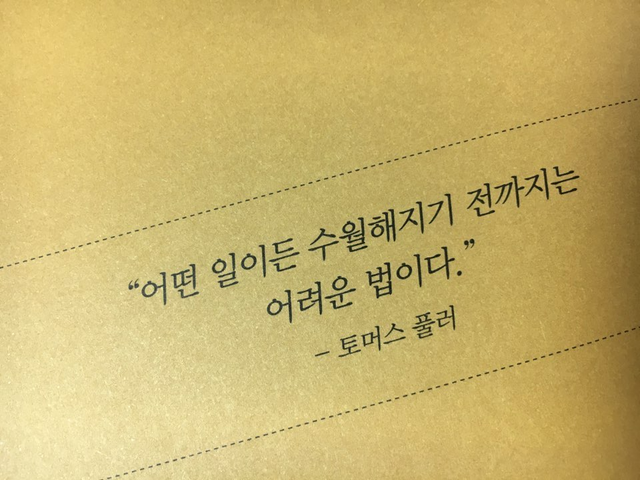 “어떤 일이든 수월해지기 전까지는
어려운 법이다.”
– 토머스 풀러